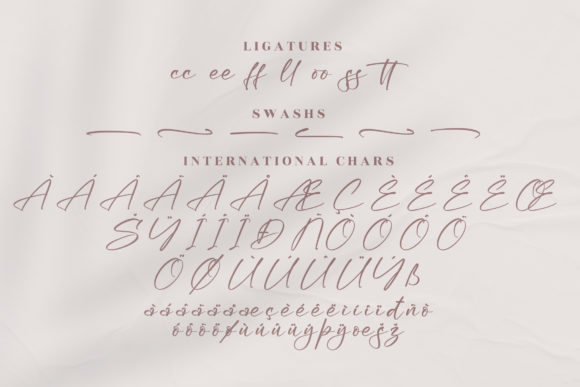 LIGATURES
cc ee ff ll oo ss tt
SWASHS
INTERNATIONAL CHARS
À Á Â Ã Ä Å Æ Ç È É Ê Ë Œ
Š Ÿ Í Î Ï Ð Ñ Ò Ó Ô Õ
Ö Ø Ù Ú Û Ü Ý ß
à á â ã ä å æ ç è é ê ë ì í î ï đ ñ ò
ó ô õ ö ø ù ú û ü ý þ ÿ œ š ž